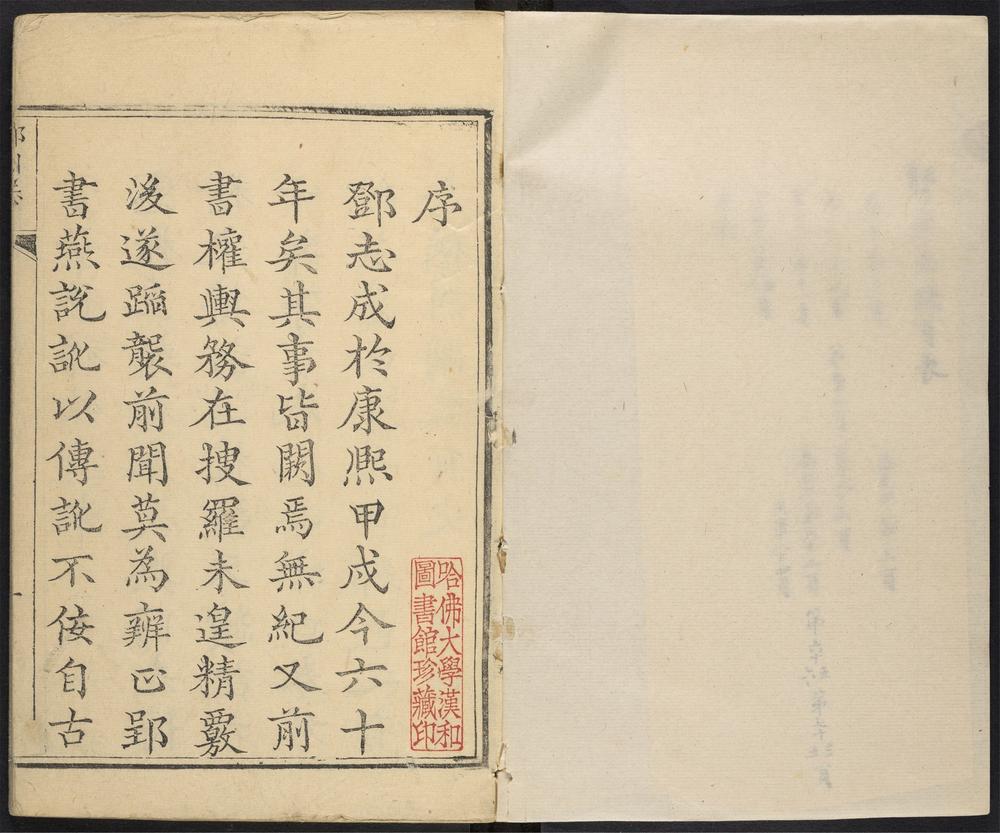 序
鄧志成於康熙甲戌今六十
年矣其事皆闕焉無紀又前
書權輿務在搜羅未遑精覈
後遂蹈襲前聞莫為辨正郢
書燕說訛以傳訛不侫自古
哈佛大學漢和
圖書館珍藏印